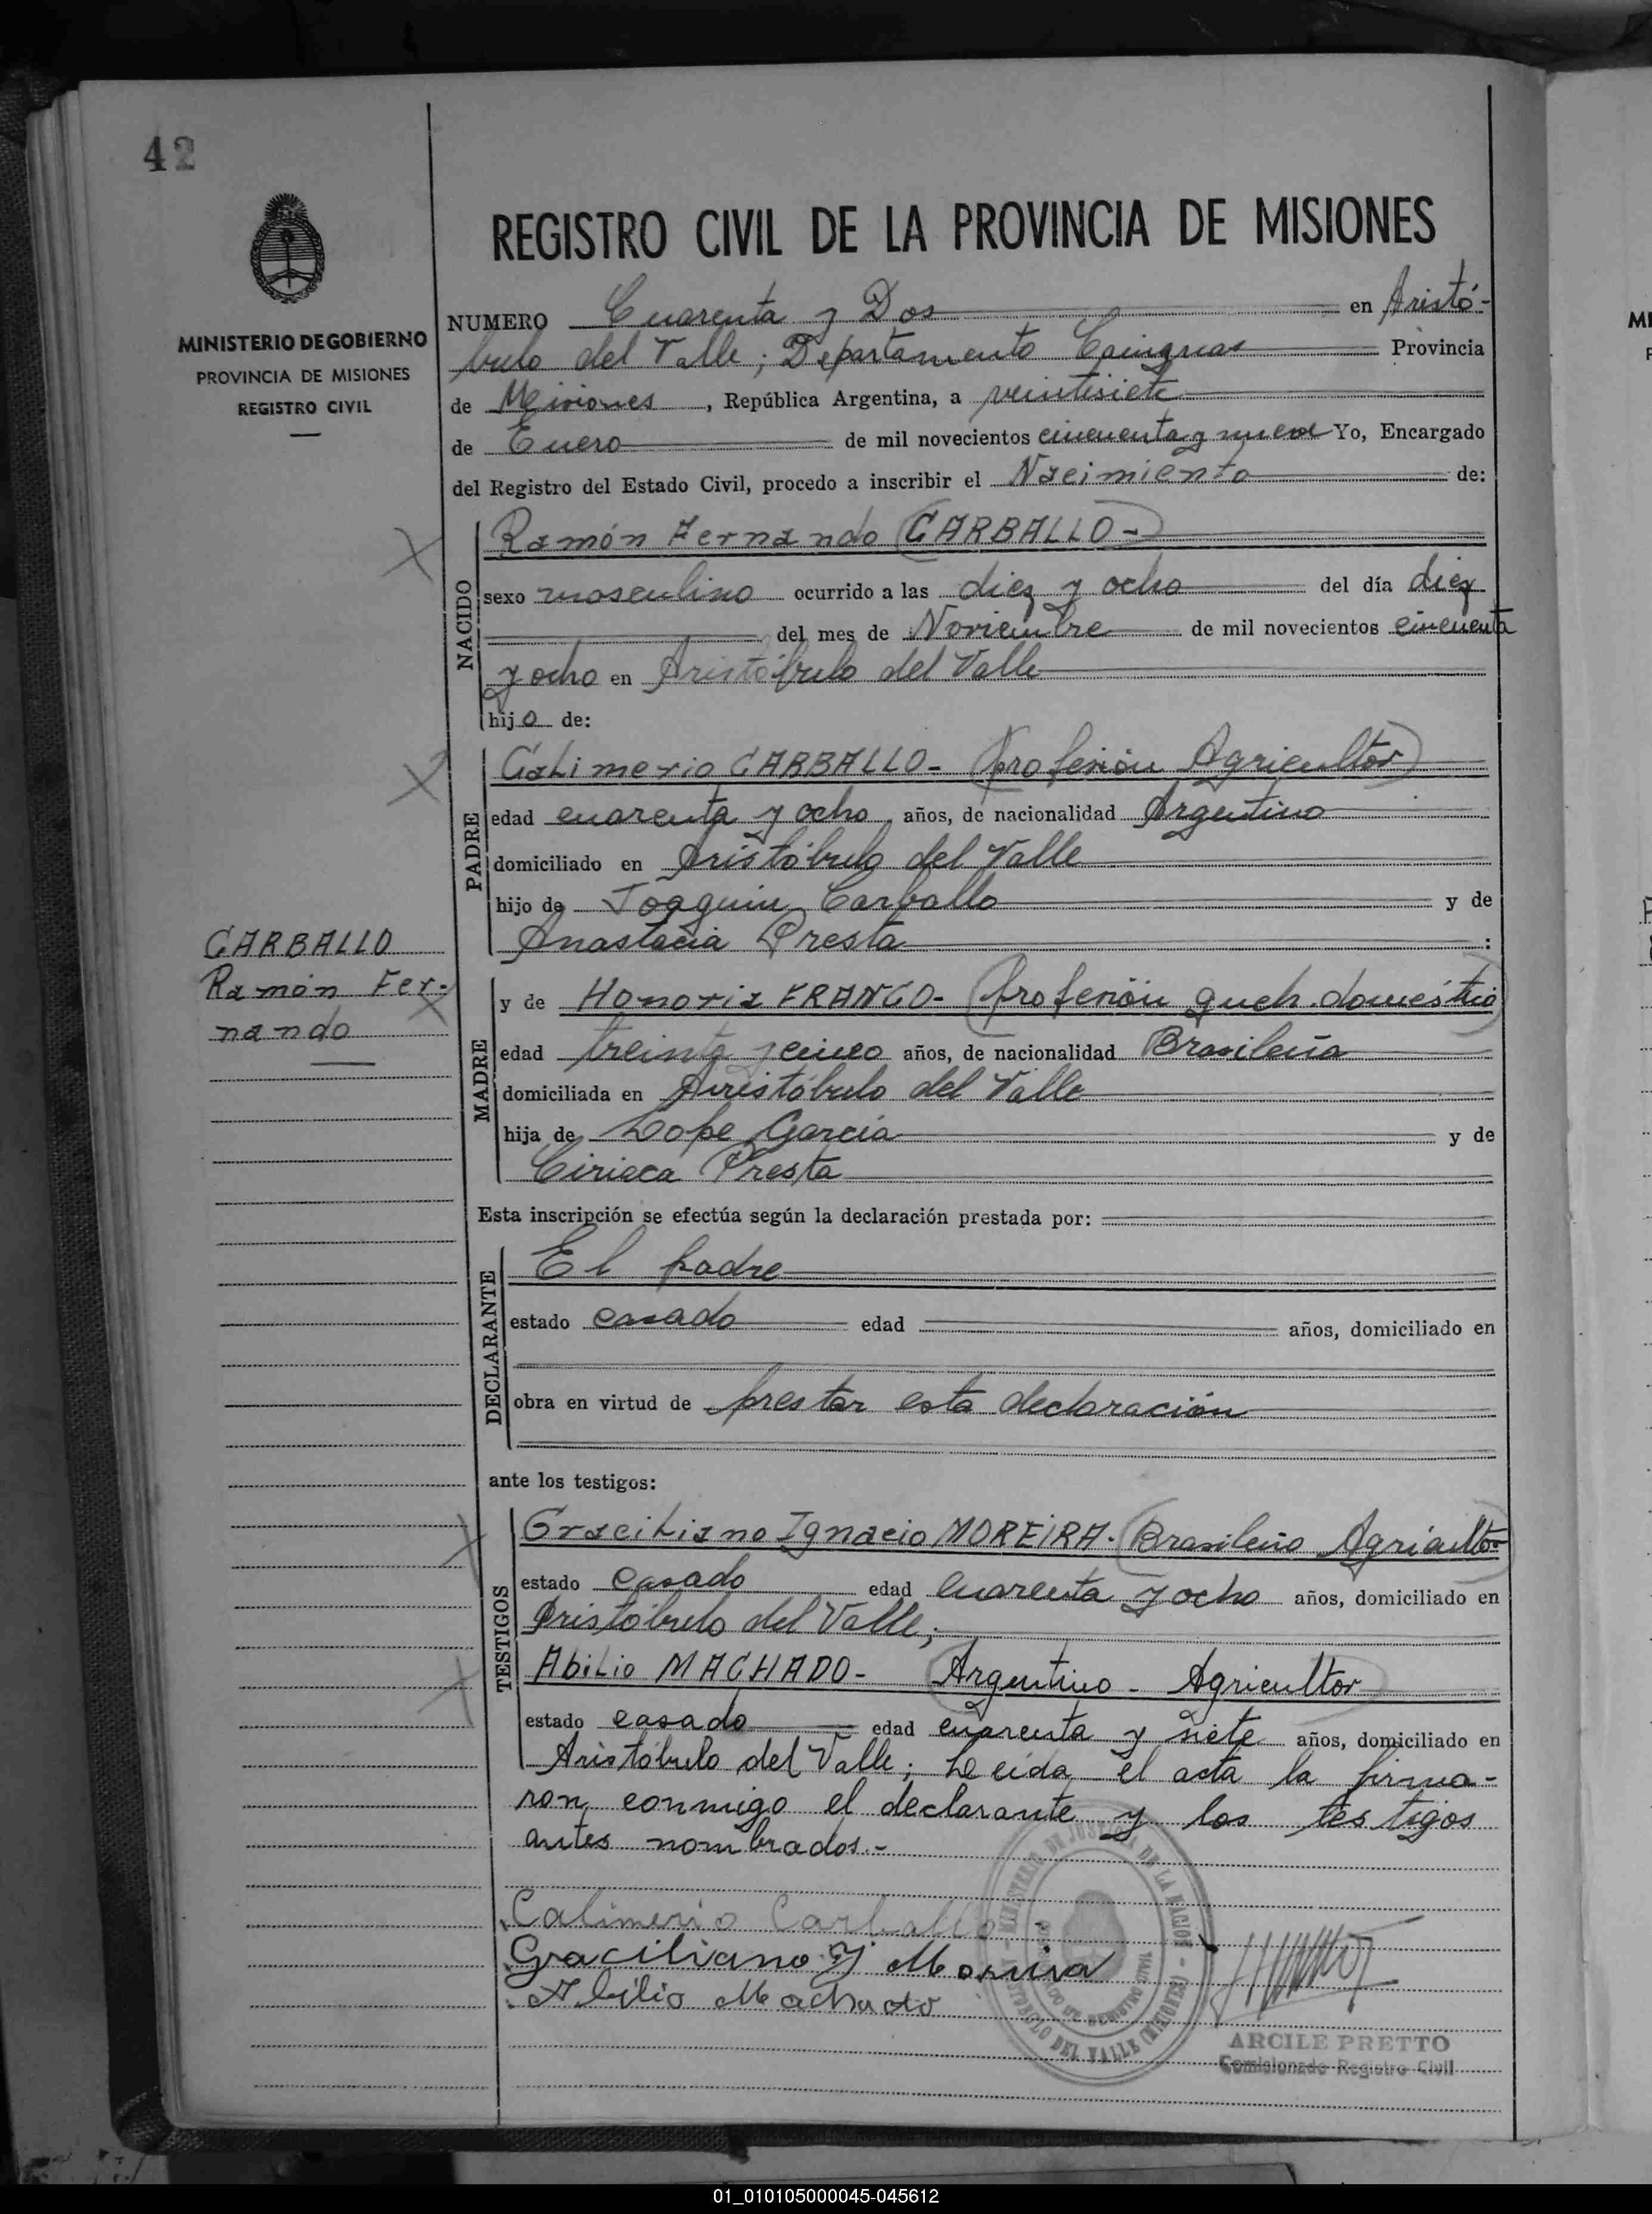 42
MINISTERIO DE GOBIERNO
PROVINCIA DE MISIONES
REGISTRO CIVIL
REGISTRO CIVIL DE LA PROVINCIA DE MISIONES
NUMERO Cuarenta y Dos en Aristó-
bulo del Valle; Departamento Cainguas Provincia
de Misiones, República Argentina, a veintisiete
de Enero de mil novecientos cincuenta y nueve Yo, Encargado
del Registro del Estado Civil, procedo a inscribir el Nacimiento de:
NACIDO
Ramón Fernando (CARBALLO-)
sexo masculino ocurrido a las diez y ocho del día diez
del mes de Noviembre de mil novecientos cincuenta
y ocho en Aristóbulo del Valle
hijo de:
PADRE
Calimerio CARBALLO- (Profesión Agricultor)
edad cuarenta y ocho años, de nacionalidad Argentino
domiciliado en Aristóbulo del Valle
hijo de Joaquin Carballo y de
Anastacia Presta :
CARBALLO
Ramón Fer-
nando
MADRE
y de Honoria FRANCO- (Profesión queh. doméstico)
edad treinta y cinco años, de nacionalidad Brasileña
domiciliada en Aristóbulo del Valle
hija de Lope Garcia y de
Ciriaca Presta
Esta inscripción se efectúa según la declaración prestada por:
DECLARANTE
El padre
estado casado edad años, domiciliado en
obra en virtud de prestar esta declaración
ante los testigos:
TESTIGOS
Graciliano Ignacio MOREIRA. (Brasileño Agricultor)
estado casado edad cuarenta y ocho años, domiciliado en
Aristóbulo del Valle;
Abilio MACHADO- (Argentino - Agricultor)
estado casado edad cuarenta y siete años, domiciliado en
Aristóbulo del Valle; Leída el acta la firma-
ron conmigo el declarante y los testigos
antes nombrados.-
Calimerio Carballo
Graciliano Y Moreira
Abilio Machado
MINISTERIO DE JUSTICIA DE LA NACION - ARISTOBULO DEL VALLE (MISIONES)
ARCILE PRETTO
Comisionado Registro Civil
01_010105000045-045612